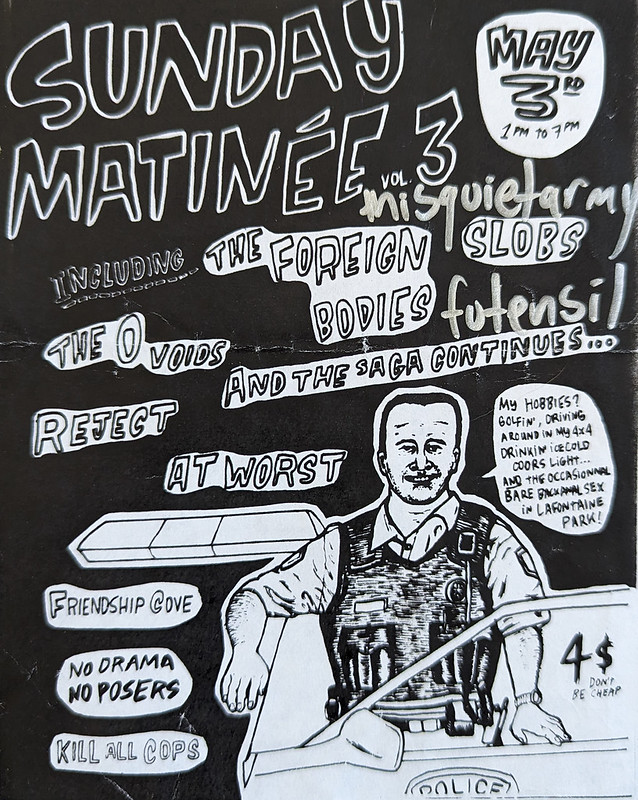 SUNDAY
MATINÉE VOL. 3
MAY
3RD
1 PM TO 7 PM
misquietarmy
INCLUDING
THE FOREIGN
BODIES
SLOBS
futensil
THE O VOIDS
AND THE SAGA CONTINUES...
REJECT
AT WORST
MY HOBBIES?
GOLFIN', DRIVING
AROUND IN MY 4X4
DRINKIN' ICECOLD
COORS LIGHT...
AND THE OCCASIONNAL
BARE BACK ANAL SEX
IN LAFONTAINE
PARK!
FRIENDSHIP COVE
NO DRAMA
NO POSERS
KILL ALL COPS
4$
DON'T
BE CHEAP
POLICE